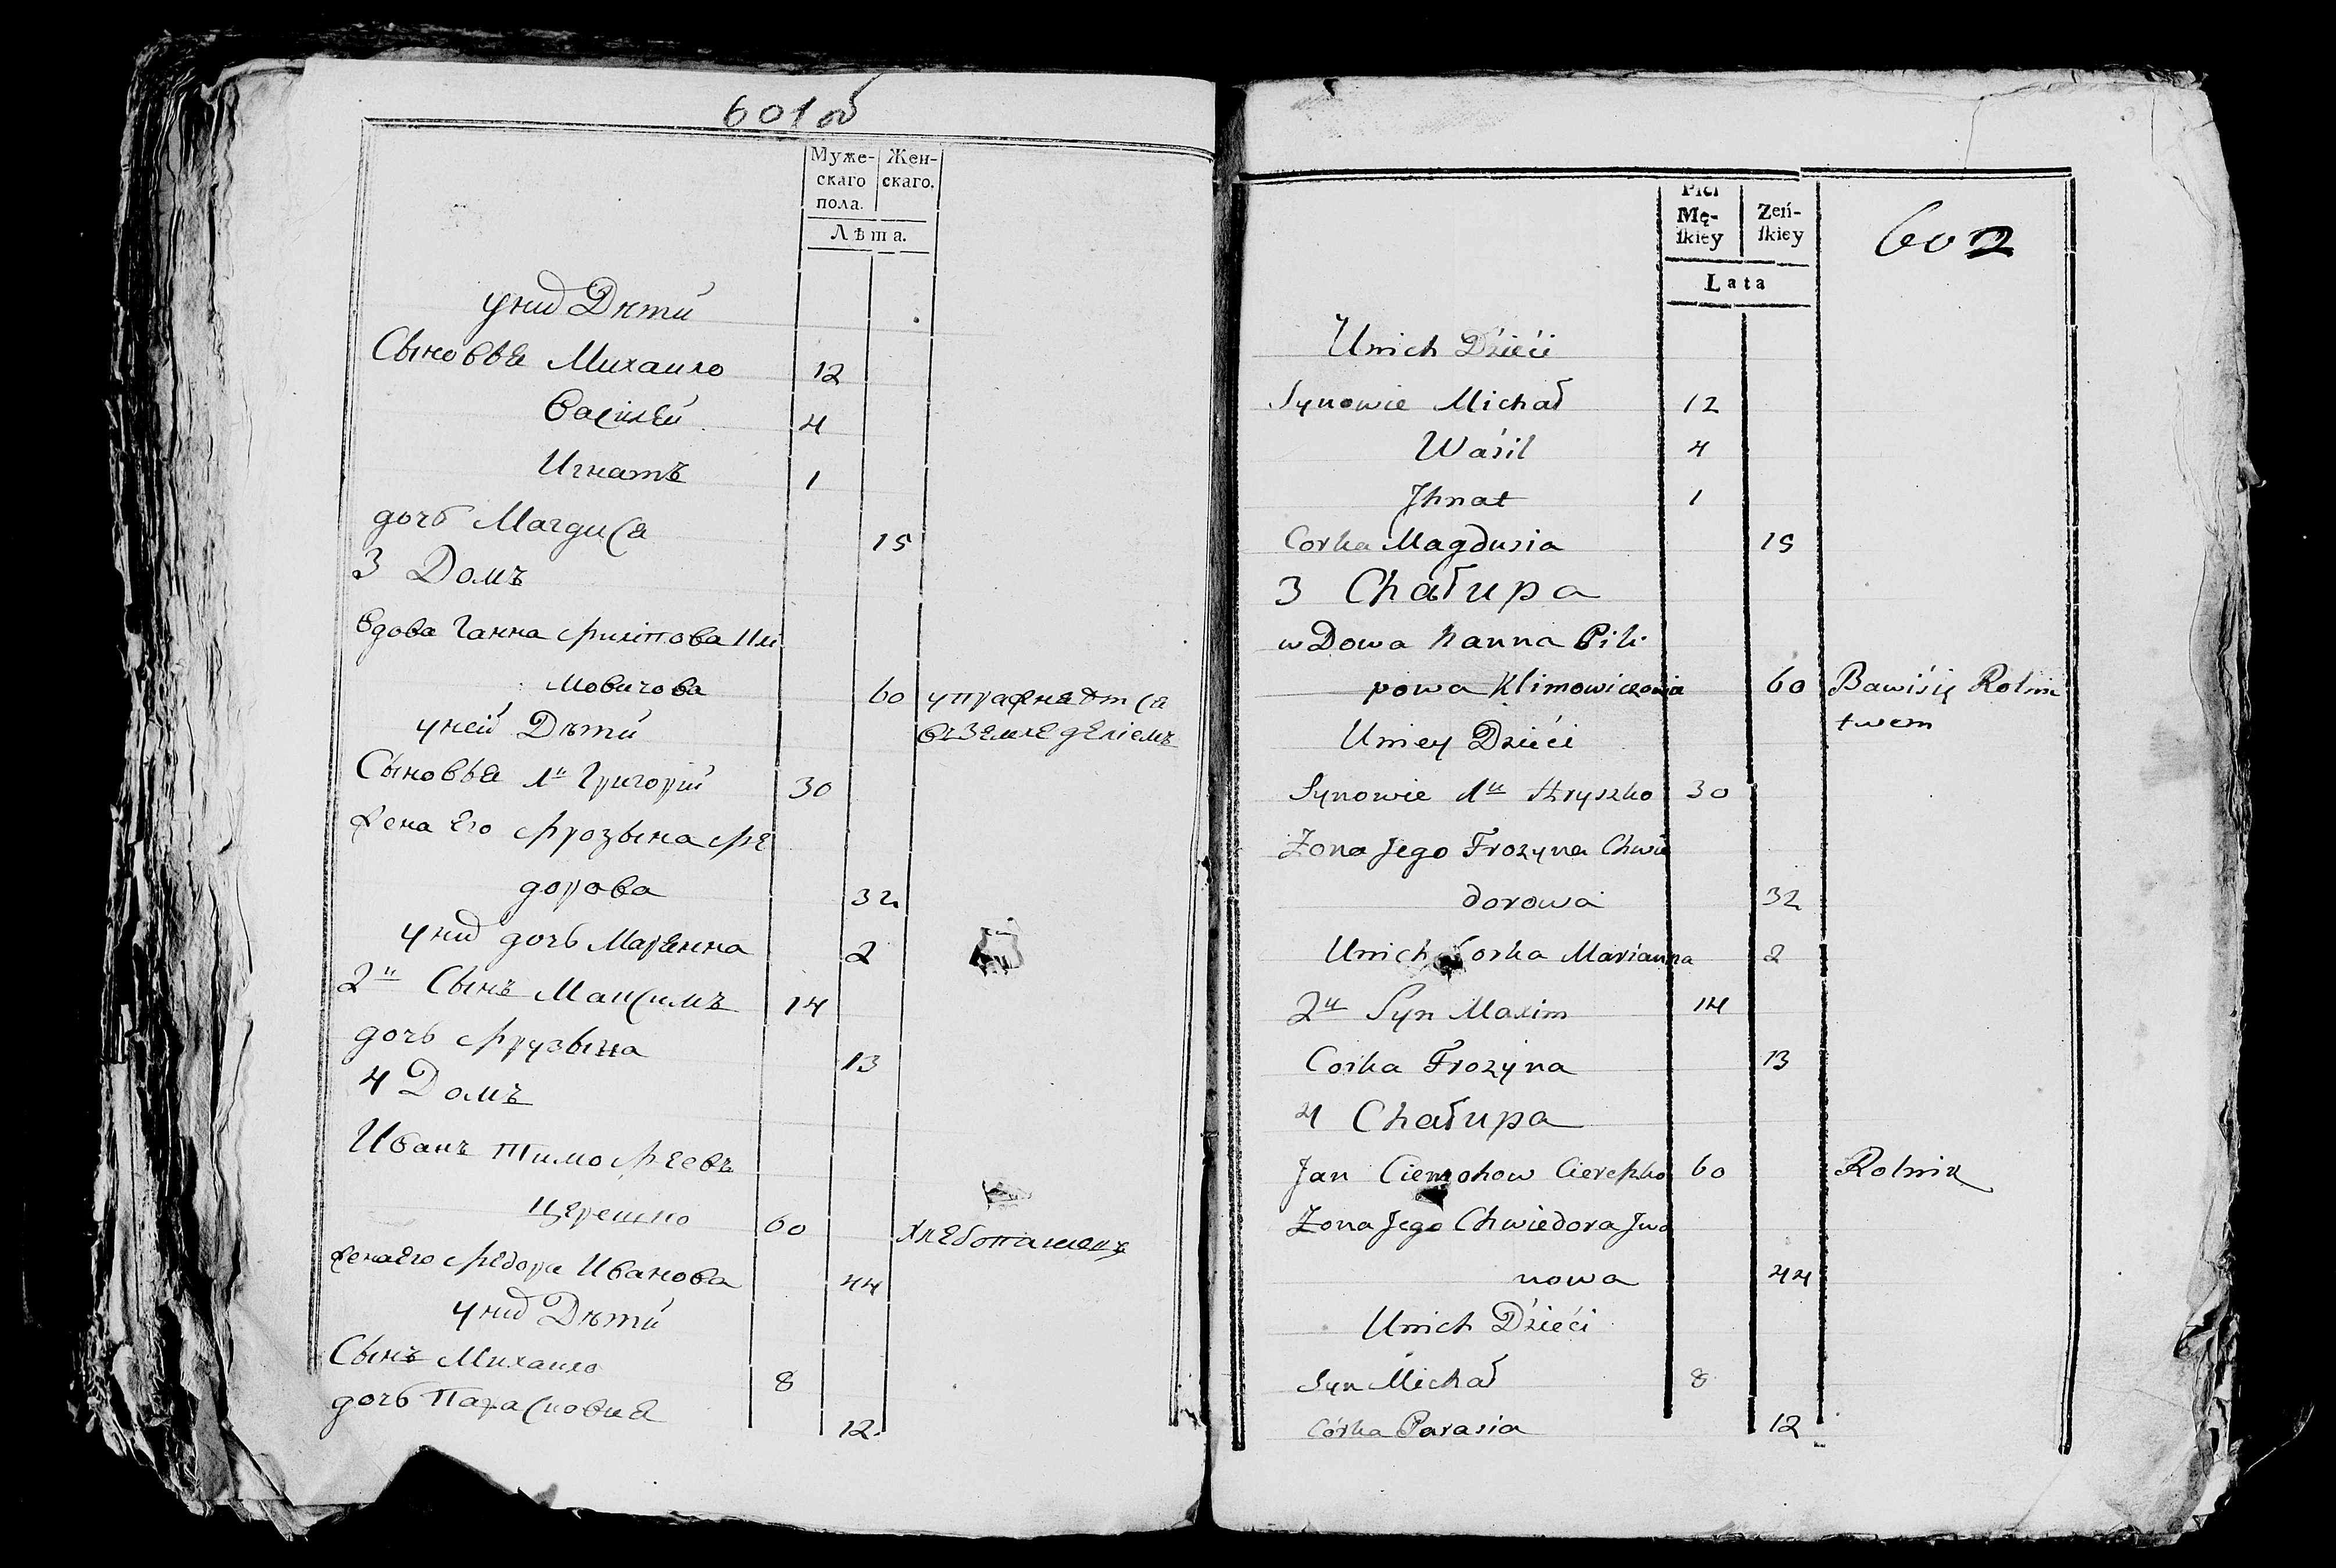 601 об
Муже-
скаго
пола.
Жен-
скаго.
Лѣта.
у них Дѣти
Сыновья Михаило 12
Василей 4
Игнатъ 1
дочь Магдися 15
3 Домъ
Вдова Ганна Филипова Кли
мовичова 60 упражняется
въ земледелiемъ
у ней Дѣти
Сыновья 1й Григорiй 30
Жена Его Фрозына Фе
дорова 32
у них дочь Марянна 2
2й Сынъ Максимъ 14
дочь Фрузына 13
4 Домъ
Иванъ Тимофеевъ
Церешко 60 Хлебопашецъ
Жена Его Федора Иванова 44
у них Дѣти
Сынъ Михаило 8
дочь Парасковия 12.
602
Płci
Mę-
ſkiey
Zeń-
ſkiey
Lata
Unich Dzieći
Synowie Michał 12
Waśil 4
Jhnat 1
Corka Magdusia 15
3 Chałupa
wDowa Hanna Pili
powa Klimowiczowa 60 Bawiśię Rolnic
twem
Uniey Dzieći
Synowie 1y Hryszko 30
Zona Jego Frozyna Chwie
dorowa 32
Unich Corka Marianna 2
2y Syn Maxim 14
Corka Frozyna 13
4 Chałupa
Jan Ciemohow Cierepko 60 Rolnik
Zona Jego Chwiedora Jwa
nowa 44
Unich Dzieći
Syn Michał 8
Córka Parasia 12